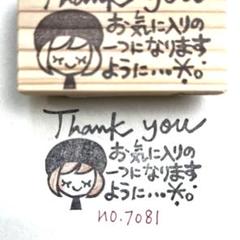 Thank you
お気に入りの
一つになります
ように…
Thank you
お気に入りの
一つになります
ように…
no.7081